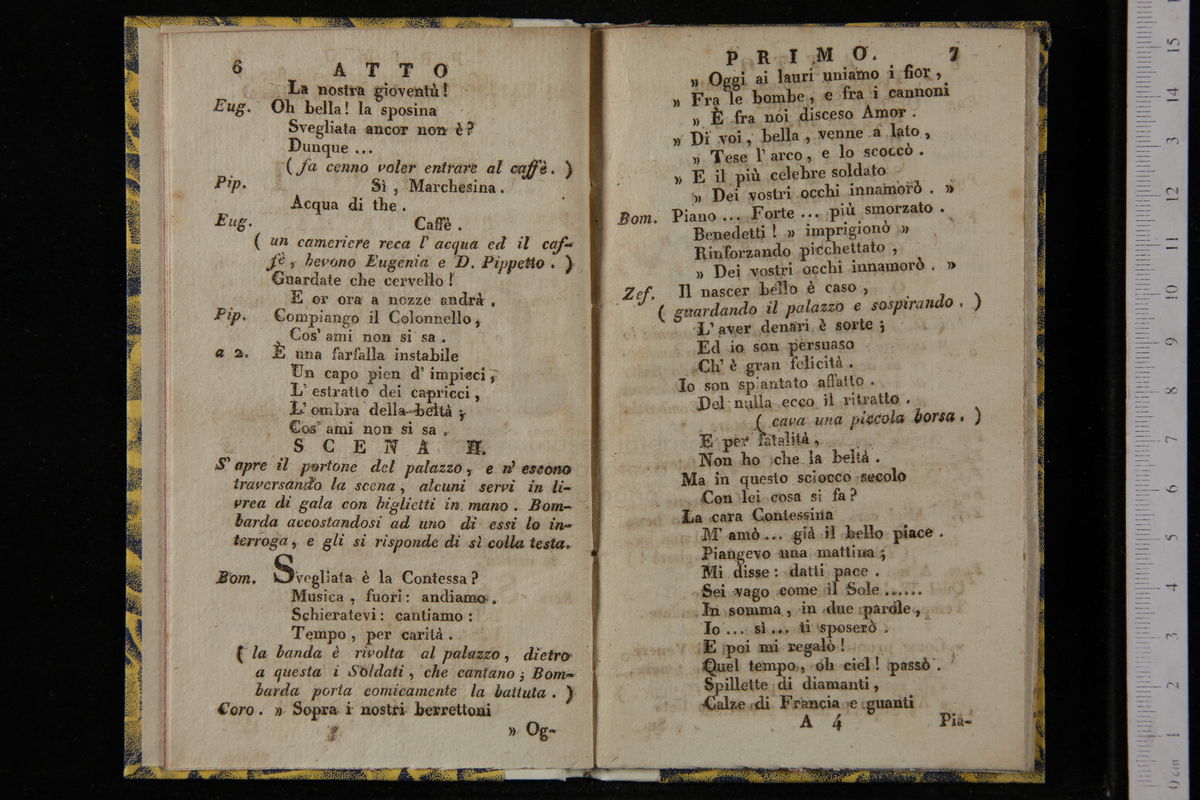 6 ATTO
La nostra gioventù!
Eug. Oh bella! la sposina
Svegliata ancor non è?
Dunque ...
(fa cenno voler entrare al caffè.)
Pip. Sì, Marchesina.
Acqua di the.
Eug. Caffè.
(un cameriere reca l' acqua ed il caf-
fè, bevono Eugenia e D. Pippetto.)
Guardate che cervello!
E or ora a nozze andrà.
Pip. Compiango il Colonnello,
Cos' ami non si sa.
a 2. È una farfalla instabile
Un capo pien d' impicci,
L' estratto dei capricci,
L' ombra della beltà;
Cos' ami non si sa.
SCENA II.
S' apre il portone del palazzo, e n' escono
traversando la scena, alcuni servi in li-
vrea di gala con biglietti in mano. Bom-
barda accostandosi ad uno di essi lo in-
terroga, e gli si risponde di sì colla testa.
Bom. Svegliata è la Contessa?
Musica, fuori: andiamo.
Schieratevi: cantiamo:
Tempo, per carità.
(la banda è rivolta al palazzo, dietro
a questa i Soldati, che cantano; Bom-
barda porta comicamente la battuta.)
Coro. » Sopra i nostri berrettoni
» Og-
PRIMO. 7
» Oggi ai lauri uniamo i fior,
» Fra le bombe, e fra i cannoni
» È fra noi disceso Amor.
» Di voi, bella, venne a lato,
» Tese l' arco, e lo scoccò.
» E il più celebre soldato
» Dei vostri occhi innamorò. »
Bom. Piano ... Forte ... più smorzato.
Benedetti! » imprigionò »
Rinforzando picchettato,
» Dei vostri occhi innamorò. »
Zef. Il nascer bello è caso,
(guardando il palazzo e sospirando.)
L' aver denari è sorte;
Ed io son persuaso
Ch' è gran felicità.
Io son spiantato affatto.
Del nulla ecco il ritratto.
(cava una piccola borsa.)
E per fatalità,
Non ho che la beltà.
Ma in questo sciocco secolo
Con lei cosa si fa?
La cara Contessina
M' amò ... già il bello piace.
Piangevo una mattina;
Mi disse: datti pace.
Sei vago come il Sole ......
In somma, in due parole,
Io ... sì ... ti sposerò.
E poi mi regalò!
Quel tempo, oh ciel! passò.
Spillette di diamanti,
Calze di Francia e guanti
A 4 Pia-
15
14
13
12
11
10
9
8
7
6
5
4
3
2
1
0 cm